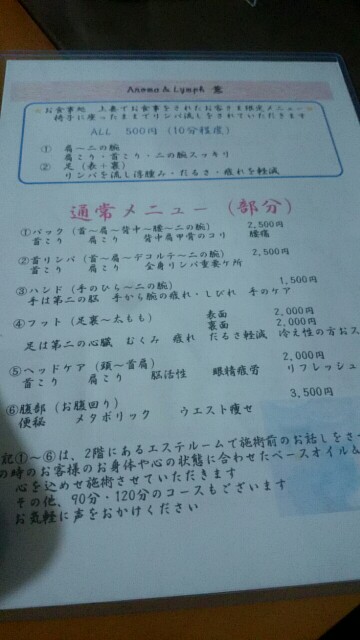 Aroma & Lymph 
お食事処 上養でお食事をされたお客さま限定メニュー
椅子に座ったままでリンパ流しをされていただきます
ALL 500円 (10分程度)
① 肩~二の腕
肩こり・首こり・二の腕スッキリ
② 足 (表+裏)
リンパを流し浮腫み・だるさ・疲れを軽減
通常メニュー (部分)
①バック (首~肩~背中~腰~二の腕) 2,500円
首こり 肩こり 背中肩甲骨のコリ 腰痛
②首リンパ (首~肩~デコルテ~二の腕) 2,500円
首こり 肩こり 全身リンパ重要ケ所
③ハンド (手のひら~二の腕) 1,500円
手は第二の脳 手から腕の疲れ・しびれ 手のケア
④フット (足裏~太もも) 表面 2,000円
裏面 2,000円
足は第二の心臓 むくみ 疲れ だるさ軽減 冷え性の方おス
⑤ヘッドケア (頭~首肩) 2,000円
首こり 肩こり 脳活性 眼精疲労 リフレッシュ
3,500円
⑥腹部 (お腹回り)
便秘 メタボリック ウエスト痩せ
記①~⑥は、2階にあるエステルームで施術前のお話しをさ
の時のお客様のお身体や心の状態に合わせたベースオイル&
心を込めせ施術させていただきます
その他、90分・120分のコースもございます
お気軽に声をおかけください